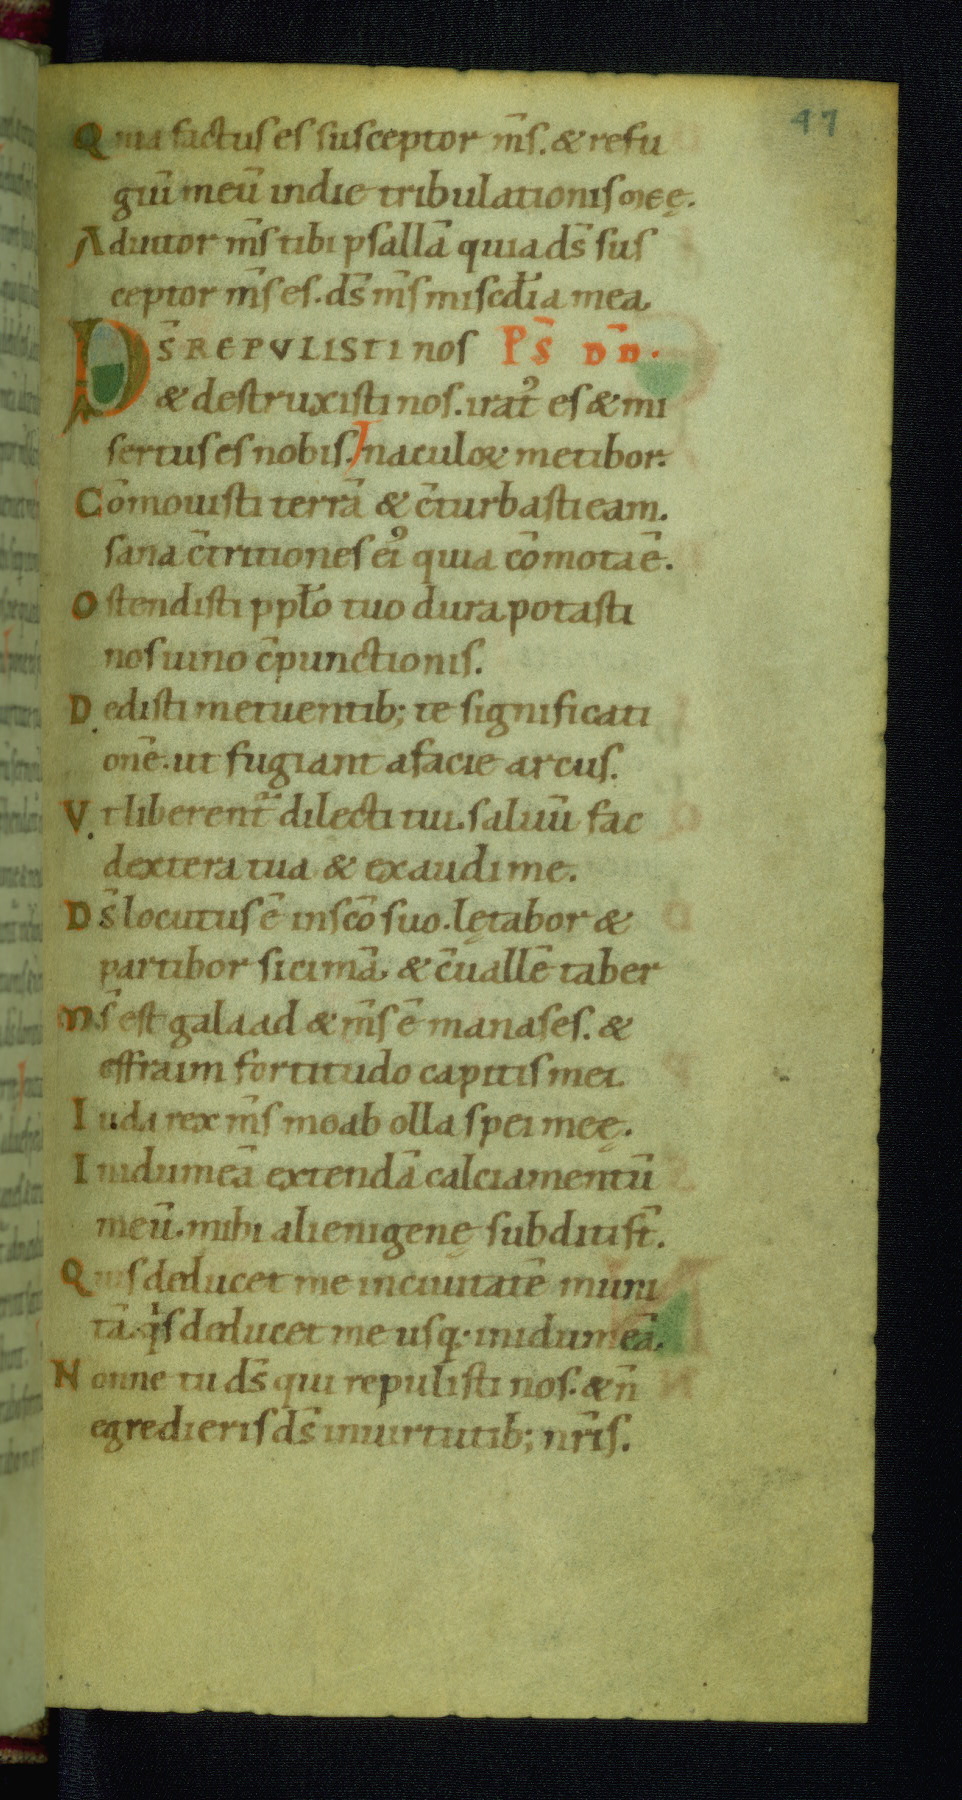 47
Quia factus es susceptor m̅s. & refu
giū meū in die tribulationis meę.
Adiutor m̅s tibi psallā quia ds̅ sus
ceptor m̅s es. ds̅ m̅s misc̅dia mea.
DS̅ REPVLISTI nos PS̅ D̅D̅.
& destruxisti nos. irat᾽ es & mi
sertus es nobis. In aculoꝝ metibor.
Cōmouisti terrā & c̅turbasti eam.
sana c̅tritiones ei᾽ quia cōmota ē.
Ostendisti ppl̅o tuo dura potasti
nos uino c̅punctionis.
Dedisti metuentib; te significati
onē. ut fugiant a facie arcus.
Vt liberent᷑ dilecti tui. saluū fac
dextera tua & exaudi me.
Ds̅ locutus ē in sc̅o suo. lętabor &
partibor sicimā. & c̅uallē taber
m̅s est galaad & m̅s ē manases. &
effraim fortitudo capitis mei.
Iuda rex m̅s moab olla spei meę.
In idumeā extendā calciamentū
meū. mihi alienigenę subditi st̅.
Quis deducet me in ciuitatē muni
tā. qͥs deducet me usq; in idumeā.
Nonne tu ds̅ qui repulisti nos. & n̅
egredieris ds̅ in uirtutib; nr̅is.